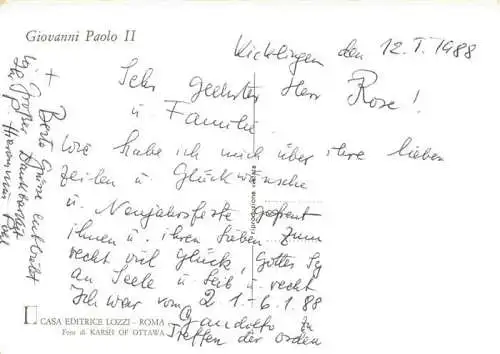 Giovanni Paolo II
Kicklingen den 12.I.1988
Sehr geehrter Herr Rose!
u Familie
Wie habe ich mich über ihre lieben
zeilen u Glückwünsche
u. Neujahrsfeste gefreut
ihnen u. ihren lieben zum
recht viel Glück, Gottes Sg
an Seele u Leib u recht
Ich war vom 2.1.-6.1.88
Gandolfo zu
Treffen der Orden
+ Beste Grüsse entbietet
in Großer Dankbarkeit
Ihr P. Hieronimus
riproduzione vietata
CASA EDITRICE LOZZI - ROMA
Foto di KARSH OF OTTAWA